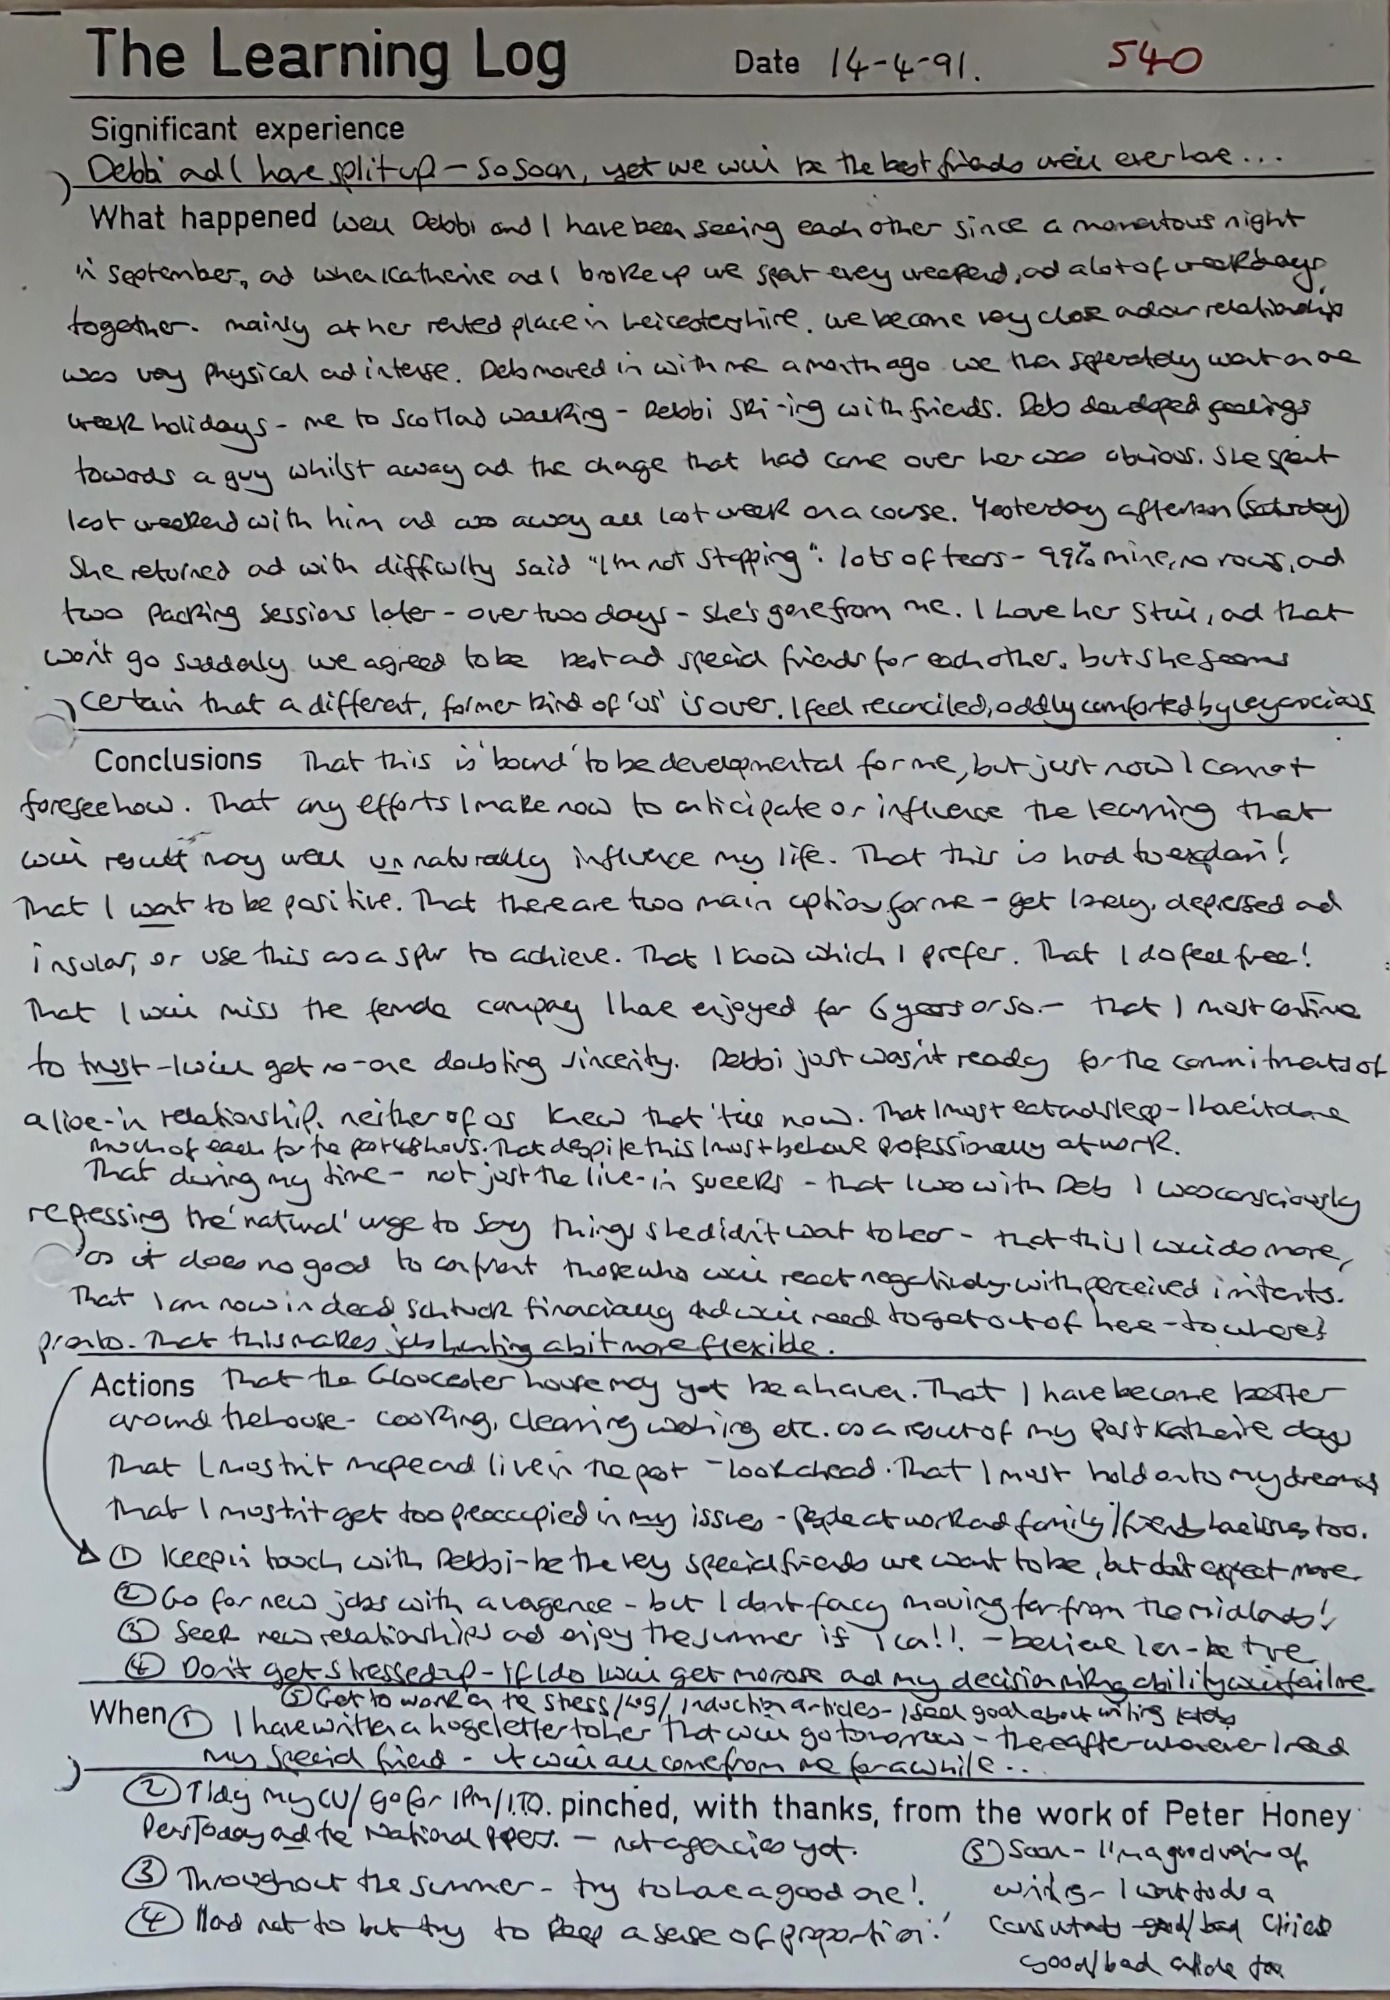 The Learning Log Date 14-4-91. 540
Significant experience
Debbi and I have split up - so soon, yet we will be the best friends we'll ever have...
What happened Well Debbi and I have been seeing each other since a momentous night
in September, and when Katherine and I broke up we spent every weekend, and a lot of weekdays
together. mainly at her rented place in Leicestershire. We became very close and our relationship
was very physical and intense. Deb moved in with me a month ago we then separately went on one
week holidays - me to Scotland walking - Debbi ski-ing with friends. Deb developed feelings
towards a guy whilst away and the change that had come over her was obvious. She spent
last weekend with him and was away all last week on a course. Yesterday afternoon (Saturday)
She returned and with difficulty said "I'm not stopping". lots of tears - 99% mine, no rows, and
two packing sessions later - over two days - she's gone from me. I love her still, and that
won't go suddenly we agreed to be best and special friends for each other. but she seems
certain that a different, former kind of 'us' is over. I feel reconciled, oddly comforted by
Conclusions That this is 'bound' to be developmental for me, but just now I cannot
foresee how. That any efforts I make now to anticipate or influence the learning that
will result may well unnaturally influence my life. That this is hard to explain!
That I want to be positive. That there are two main options for me - get lonely, depressed and
insular, or use this as a spur to achieve. That I know which I prefer. That I do feel free!
That I will miss the female company I have enjoyed for 6 years or so - that I must continue
to trust - I will get no-one doubting sincerity. Debbi just wasn't ready for the commitments of
a live-in relationship. neither of us knew that 'till now. That I must eat and sleep - I haven't done
much of each for the past 48 hours. That despite this I must behave professionally at work.
That during my time - not just the live-in 5 weeks - that I was with Deb I was consciously
repressing the 'natural' urge to say things she didn't want to hear - that this I will do more,
as it does no good to confront those who will react negatively with perceived intents.
That I am now in dead schtuck financially and will need to get out of here - to where?
pronto. That this makes job hunting a bit more flexible.
Actions That the Gloucester house may yet be a haven. That I have become better
around the house - cooking, cleaning washing etc. as a result of my post Katherine days
That I mustn't mope and live in the past - look ahead. That I must hold onto my dreams
That I mustn't get too preoccupied in my issues - people at work and family/friends have issues too.
① Keep in touch with Debbi - be the very special friends we want to be, but don't expect more.
② Go for new jobs with a vengence - but I don't fancy moving far from the midlands!
③ Seek new relationships and enjoy the summer if I can!! - believe I can - be true
④ Don't get stressed up - if I do I will get morose and my decision making ability will fail me.
⑤ Get to work on the stress/log/induction articles - I feel good about writing
When ① I have written a huge letter to her that will go tomorrow - thereafter whenever I need
my special friend - it will all come from me for a while...
② Tidy my CV/go for IPM/ITD.
pinched, with thanks, from the work of Peter Honey
Pers Today and the National papers. - not agencies yet.
③ Throughout the summer - try to have a good one!
④ Hard not to but try to keep a sense of proportion!
⑤ Soon - I'm a good vein of
writing - I want to do a
consultants good/bad clients
good/bad article too